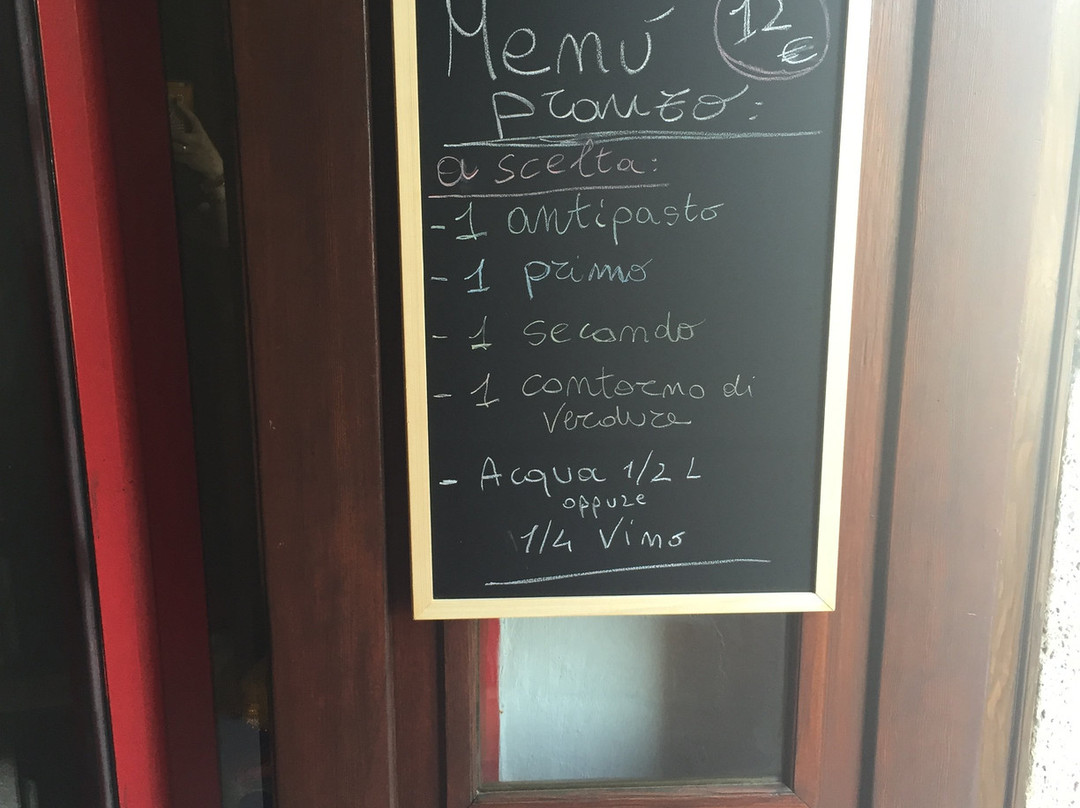 Menú 12 €
pranzo:
a scelta:
- 1 antipasto
- 1 primo
- 1 secondo
- 1 contorno di
verdure
- Acqua 1/2 L
oppure
1/4 Vino